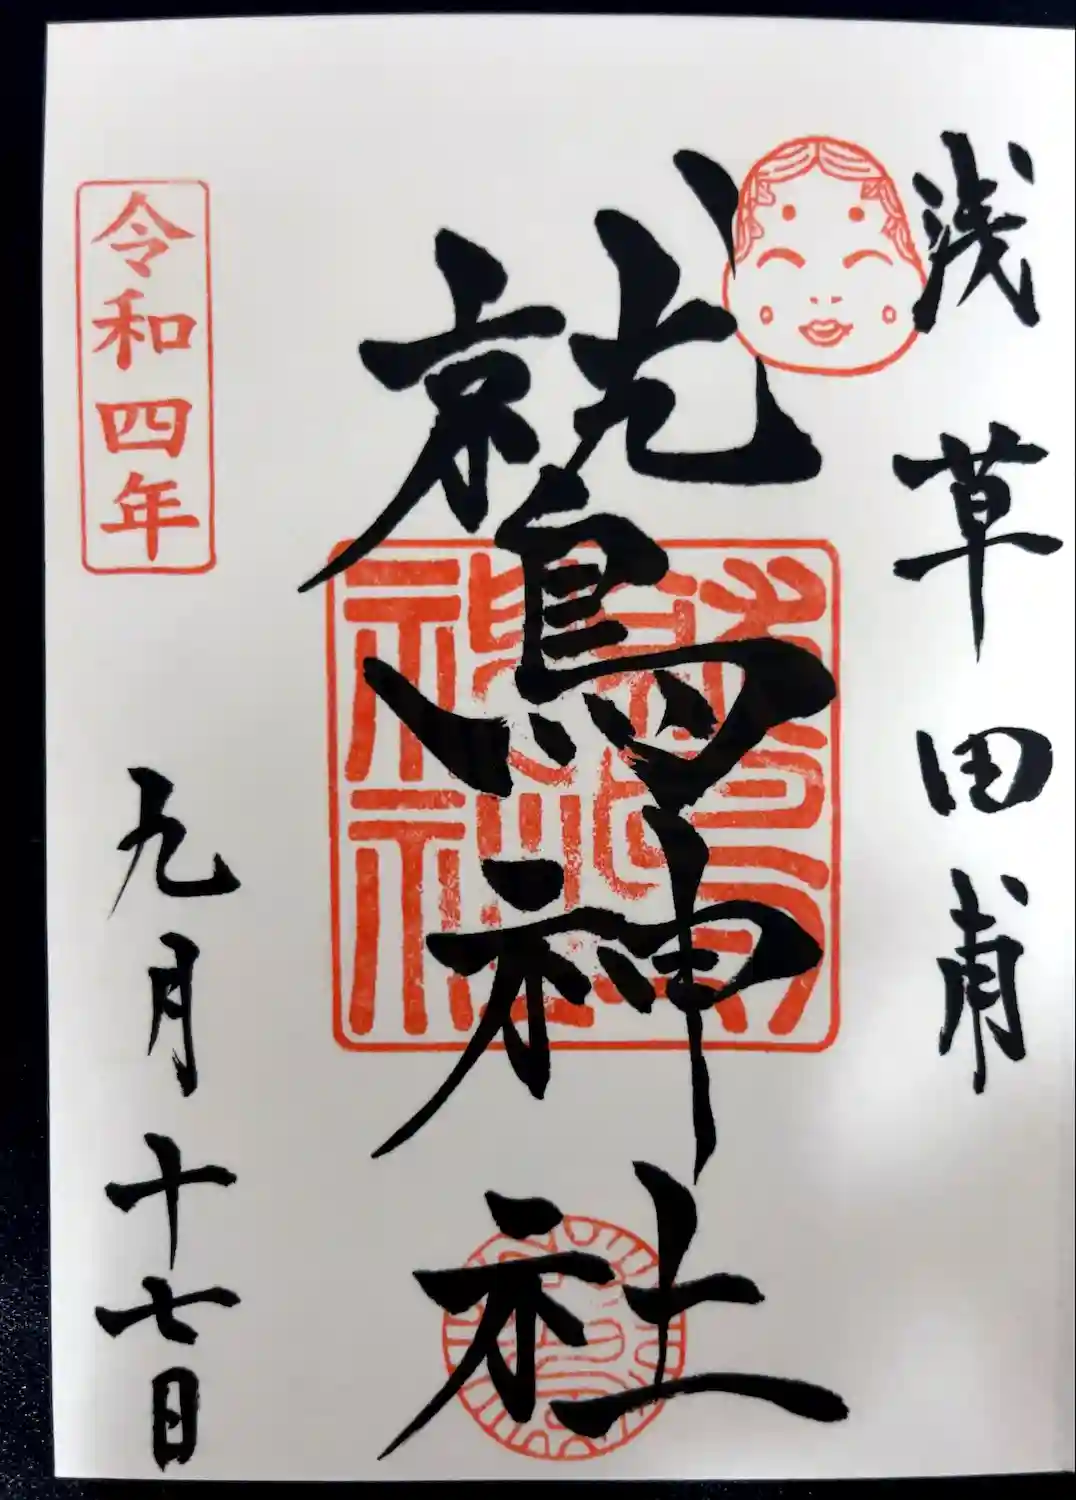 浅草田甫
鷲神社
令和四年
九月十七日